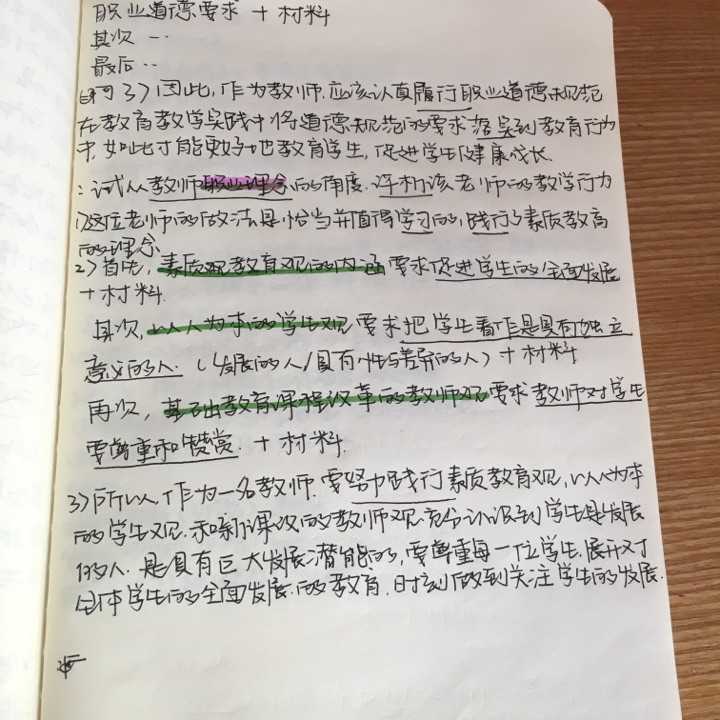 职业道德要求 + 材料
其次 …
最后 ..
3)因此,作为教师.应该认真履行职业道德规范
在教育教学实践中将道德规范的要求落实到教育行为
中,如此才能更好地教育学生,促进学生健康成长.
二:试从教师职业理念的角度.评析该老师的教学行为
1)这位老师的做法是恰当并值得学习的,践行了素质教育
的理念
2)首先,素质观教育观的内涵要求促进学生的全面发展
+ 材料.
其次,以人为本的学生观要求把学生看作是具有独立
意义的人.(发展的人/具有个性与差异的人)+ 材料
再次,基础教育课程改革的教师观要求教师对学生
要尊重和赞赏. + 材料.
3)所以,作为一名教师.要努力践行素质教育观,以人为本
的学生观.和新课改的教师观充分认识到学生是发展
的人.是具有巨大发展潜能的,要尊重每一位学生.展开对
全体学生的全面发展的教育.时刻做到关注学生的发展.